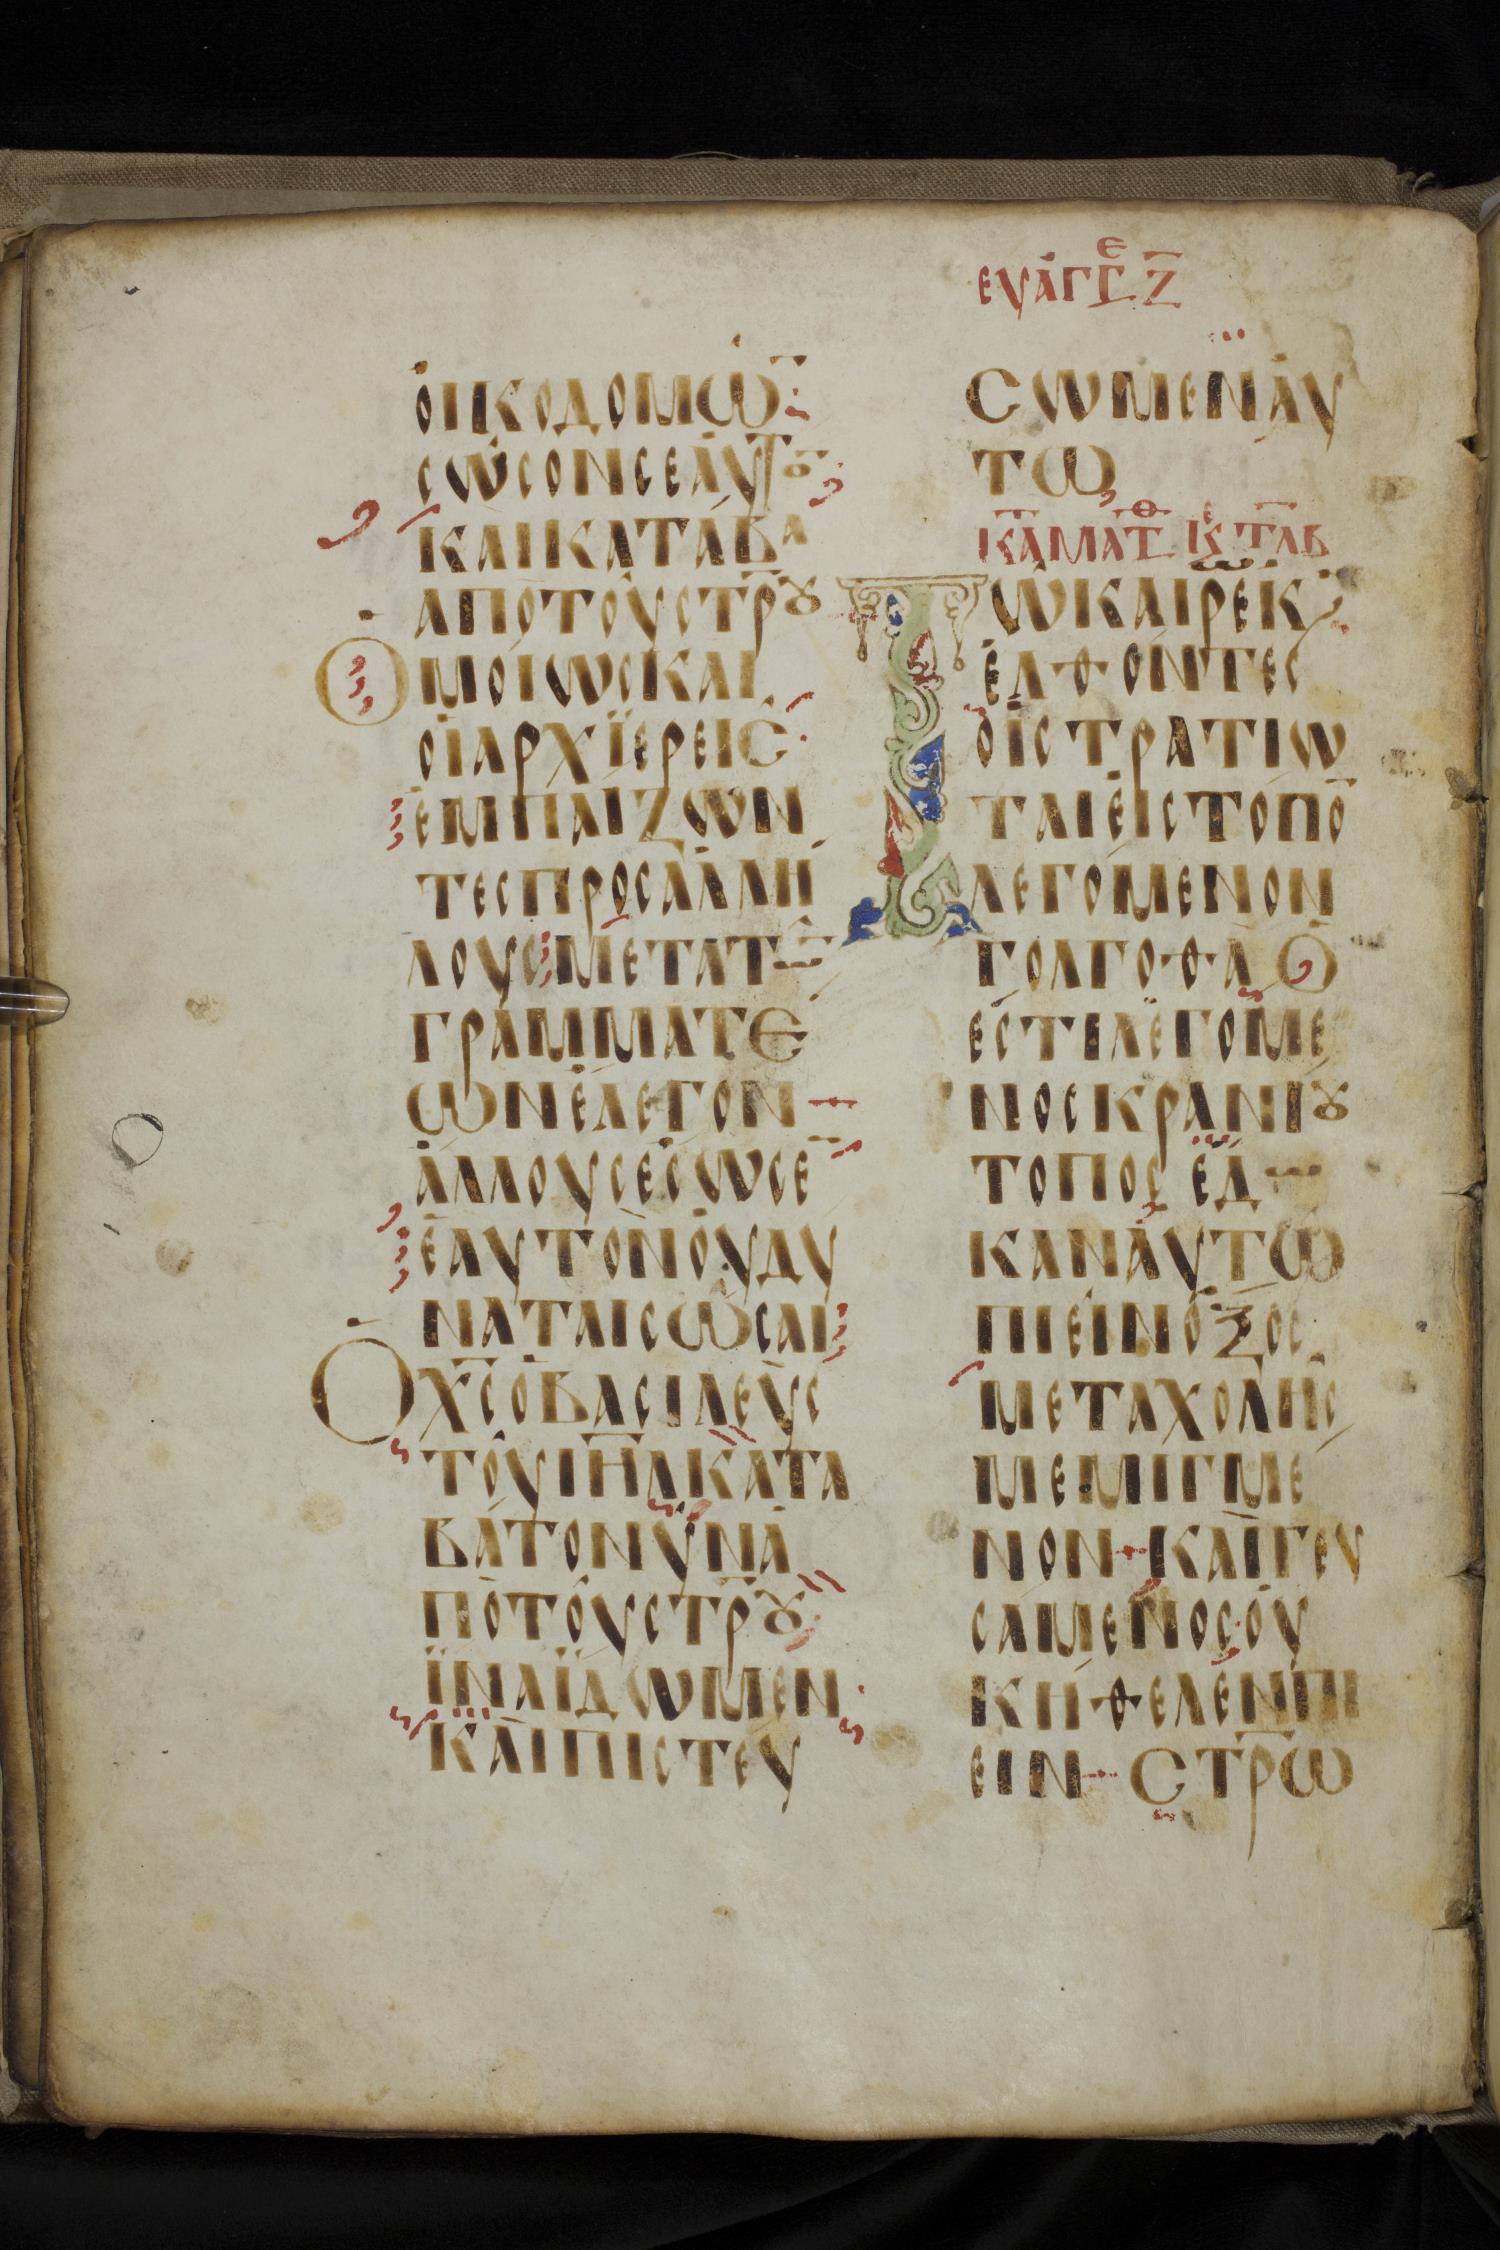 ὁικοδομῶ̄
σῶσονσεαυτο̄
καικατάβα
ἀποτοῦστρ̄ȣ
Ὁμοίωσκαι
ὁιἀρχϊερεῖσ
ἐμπαίζων
τεσπροσἀλλή
λουσμετατῶ̄
γραμματέ
ωνἔλεγον
ἄλλουσἔσωσε̄
ἑαυτὸνὀυδύ
ναταισῶσαι
Ὁχ̄σὁβασιλεὺσ
τοῦιη̄λκατα
βάτονῦνἀ
πὸτοῦστρ̄ȣ
ϊναϊδωμεν
κὰιπιστεύ
εὐαγγε ζ̄
σωμεναυ
τῶ
κ̄α ματθ κε τ̄αβ
Τῶκαιρ̄ἐκ
ἐλθόντεσ
ὁιστρατιῶ
ταιἐιστόπο̄
λεγόμενον
γολγοθᾶ Ὅ
ἐστιλεγόμε
νοσκρανίȣ
τόποσ ἔδω
κανἀυτῶ
πιεῖνόξοσ
μεταχολῆσ
μεμιγμέ
νον καὶγευ
σάμενοσου
κήθελενπι
εῖν Στρ̄ω